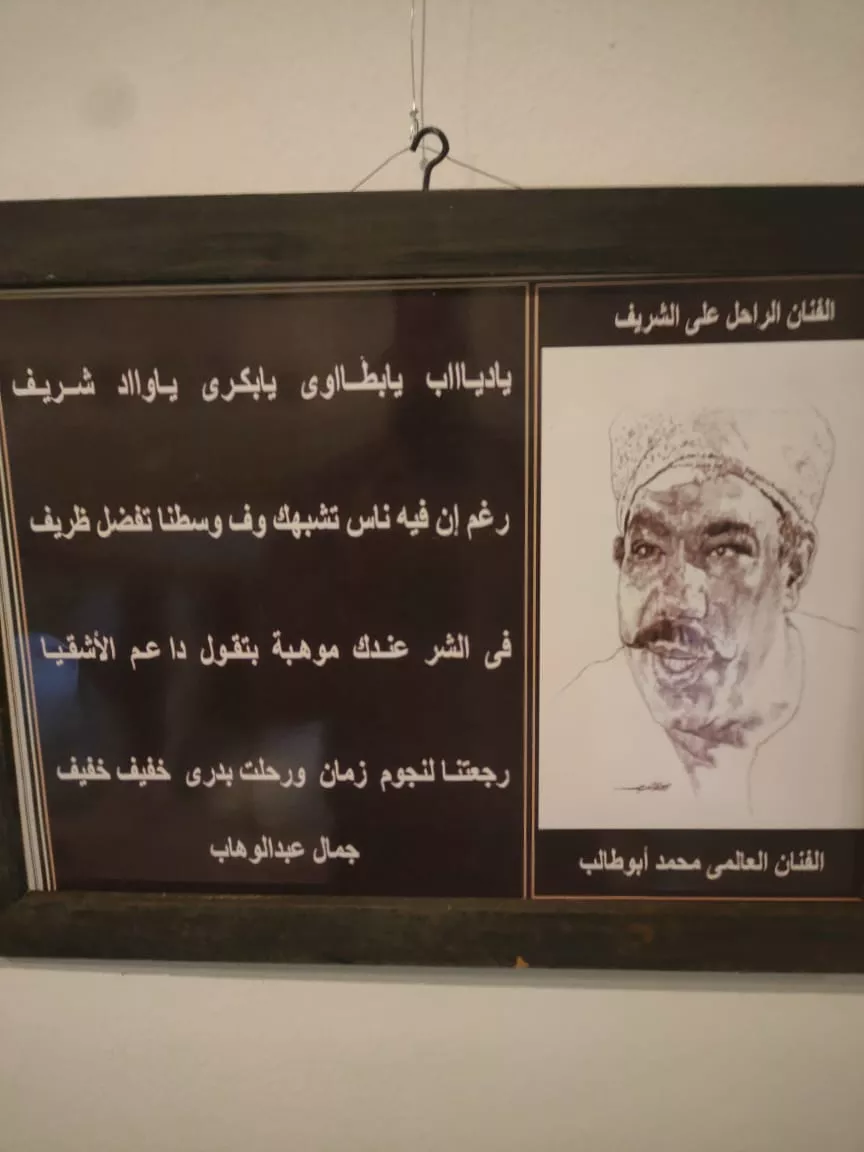 الفنان الراحل على الشريف
يادياااب يابطّـااوى يابكرى ياوااد شريف
رغم إن فيه ناس تشبهك وف وسطنا تفضل ظريف
فى الشر عندك موهبة بتقول دا عم الأشقيا
رجعتنا لنجوم زمان ورحلت بدرى خفيف خفيف
جمال عبدالوهاب
الفنان العالمى محمد أبوطالب